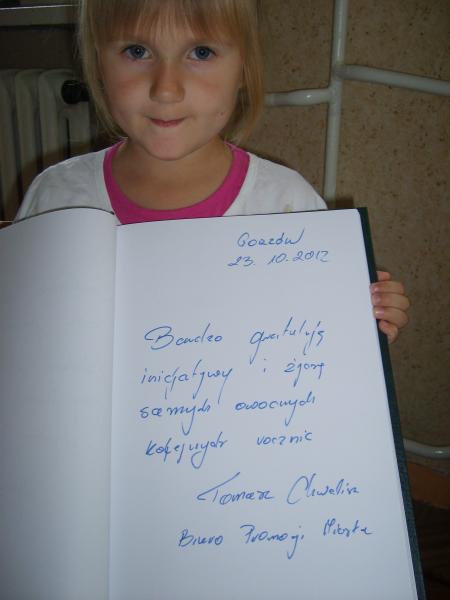 Gozdów
23.10.2012
Bardzo gratuluję
inicjatywy i życzę
samych owocnych
kolejnych rocznic
Tomasz
Biuro Promocji Miasta